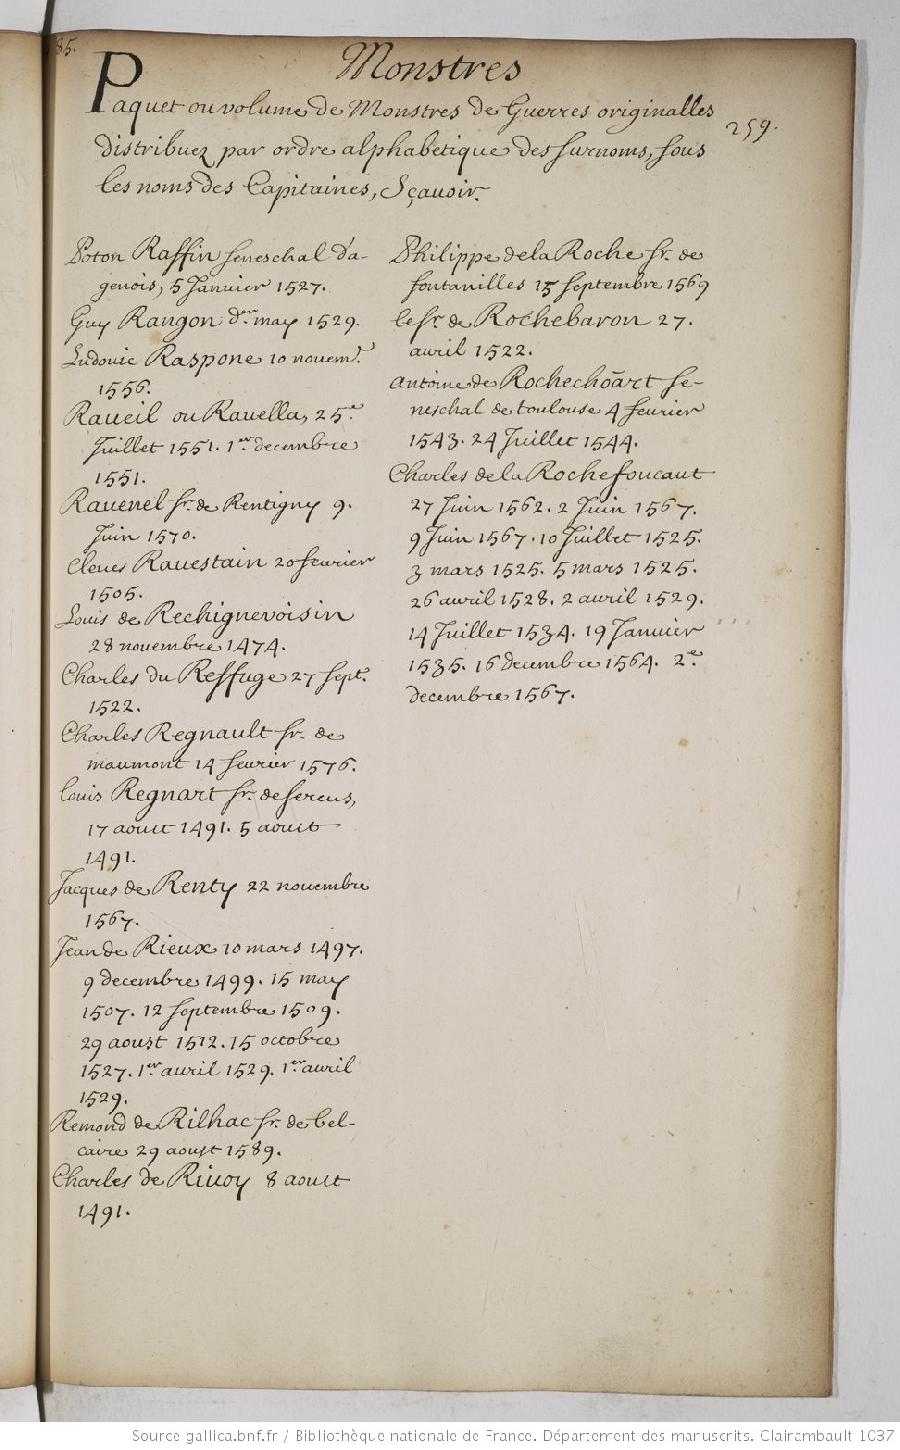 85.
Monstres
Paquet ou volume de Monstres de Guerres originalles
259.
distribuez par ordre alphabetique des surnoms, sous
les noms des Capitaines, Sçavoir.
Poton Raffin seneschal d'a-
genois, 5 Janvier 1527.
Guy Rangon d.er may 1529.
Ludovic Raspone 10 novem.e
1556.
Raueil ou Rauella, 25.e
Juillet 1551. 1.er decembre
1551.
Rauenel sr. de Rentigny 9.
Juin 1570.
Cleues Rauestain 20 feurier
1505.
Louis de Rechignevoisin
28 novembre 1474.
Charles du Reffuge 27 sept.e
1522.
Charles Regnault sr. de
maumont 14 feurier 1576.
Louis Regnart sr. de sereus,
17 aoust 1491. 5 aoust
1491.
Jacques de Renty 22 novembre
1567.
Jean de Rieux 10 mars 1497.
9 decembre 1499. 15 may
1507. 12 septembre 1509.
29 aoust 1512. 15 octobre
1527. 1.er auril 1529. 1.er auril
1529.
Remond de Rilhac sr. de bel-
caire 29 aoust 1589.
Charles de Riuoy 8 aoust
1491.
Philippe de la Roche sr. de
fontanilles 15 septembre 1569
le sr. de Rochebaron 27.
auril 1522.
Antoine de Rochechoart se-
neschal de toulouse 4 feurier
1543. 24 Juillet 1544.
Charles de la Rochefoucaut
27 Juin 1562. 2 Juin 1567.
9 Juin 1567. 10 Juillet 1525.
3 mars 1525. 5 mars 1525.
26 auril 1528. 2 auril 1529.
14 Juillet 1534. 19 Januier
1535. 16 decembre 1564. 2.e
decembre 1567.
Source gallica.bnf.fr / Bibliothèque nationale de France. Département des manuscrits. Clairambault 1037